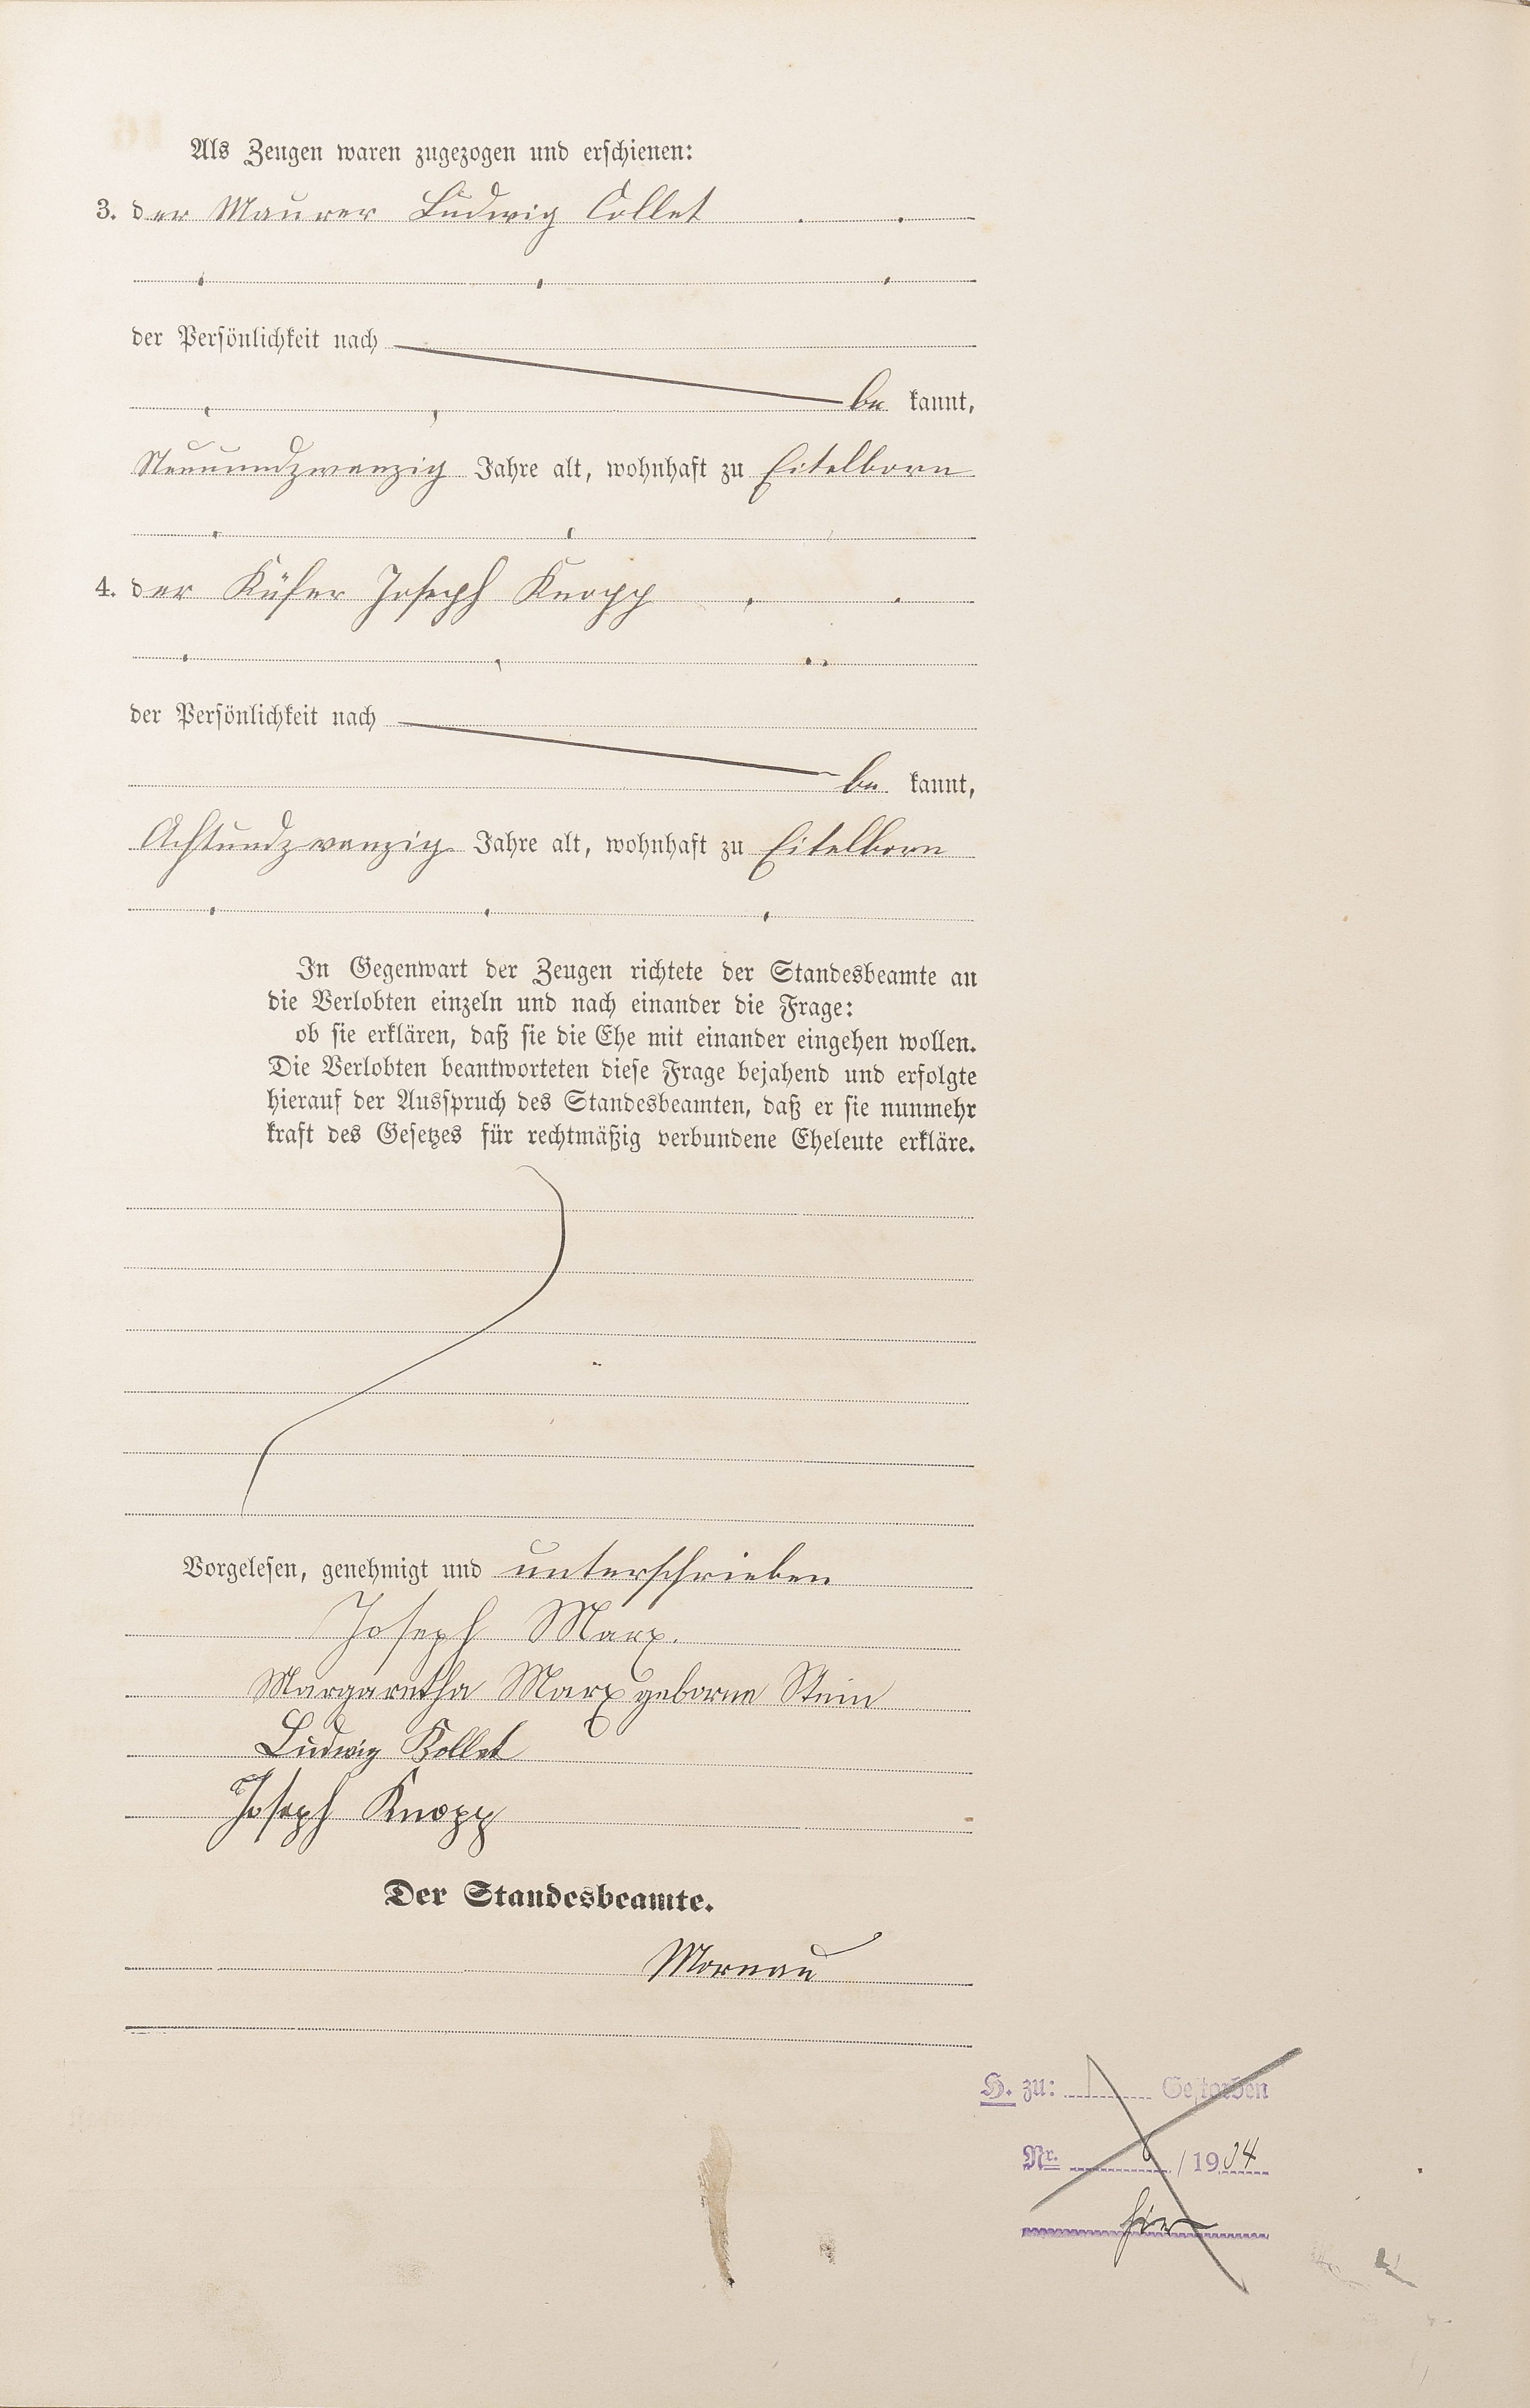 Als Zeugen waren zugezogen und erschienen:
3. der Maurer Ludwig Collet
der Persönlichkeit nach
be kannt,
Neunundzwanzig Jahre alt, wohnhaft zu Eitelborn
4. der Küfer Joseph Knopp
der Persönlichkeit nach
be kannt,
Achtundzwanzig Jahre alt, wohnhaft zu Eitelborn
In Gegenwart der Zeugen richtete der Standesbeamte an
die Verlobten einzeln und nach einander die Frage:
ob sie erklären, daß sie die Ehe mit einander eingehen wollen.
Die Verlobten beantworteten diese Frage bejahend und erfolgte
hierauf der Ausspruch des Standesbeamten, daß er sie nunmehr
kraft des Gesetzes für rechtmäßig verbundene Eheleute erkläre.
Vorgelesen, genehmigt und unterschrieben
Joseph Marx.
Margaretha Marx geborne Stein
Ludwig Kollet
Joseph Knopp
Der Standesbeamte.
Mornau
H. zu: Gestorben
Nr. /1934
hier